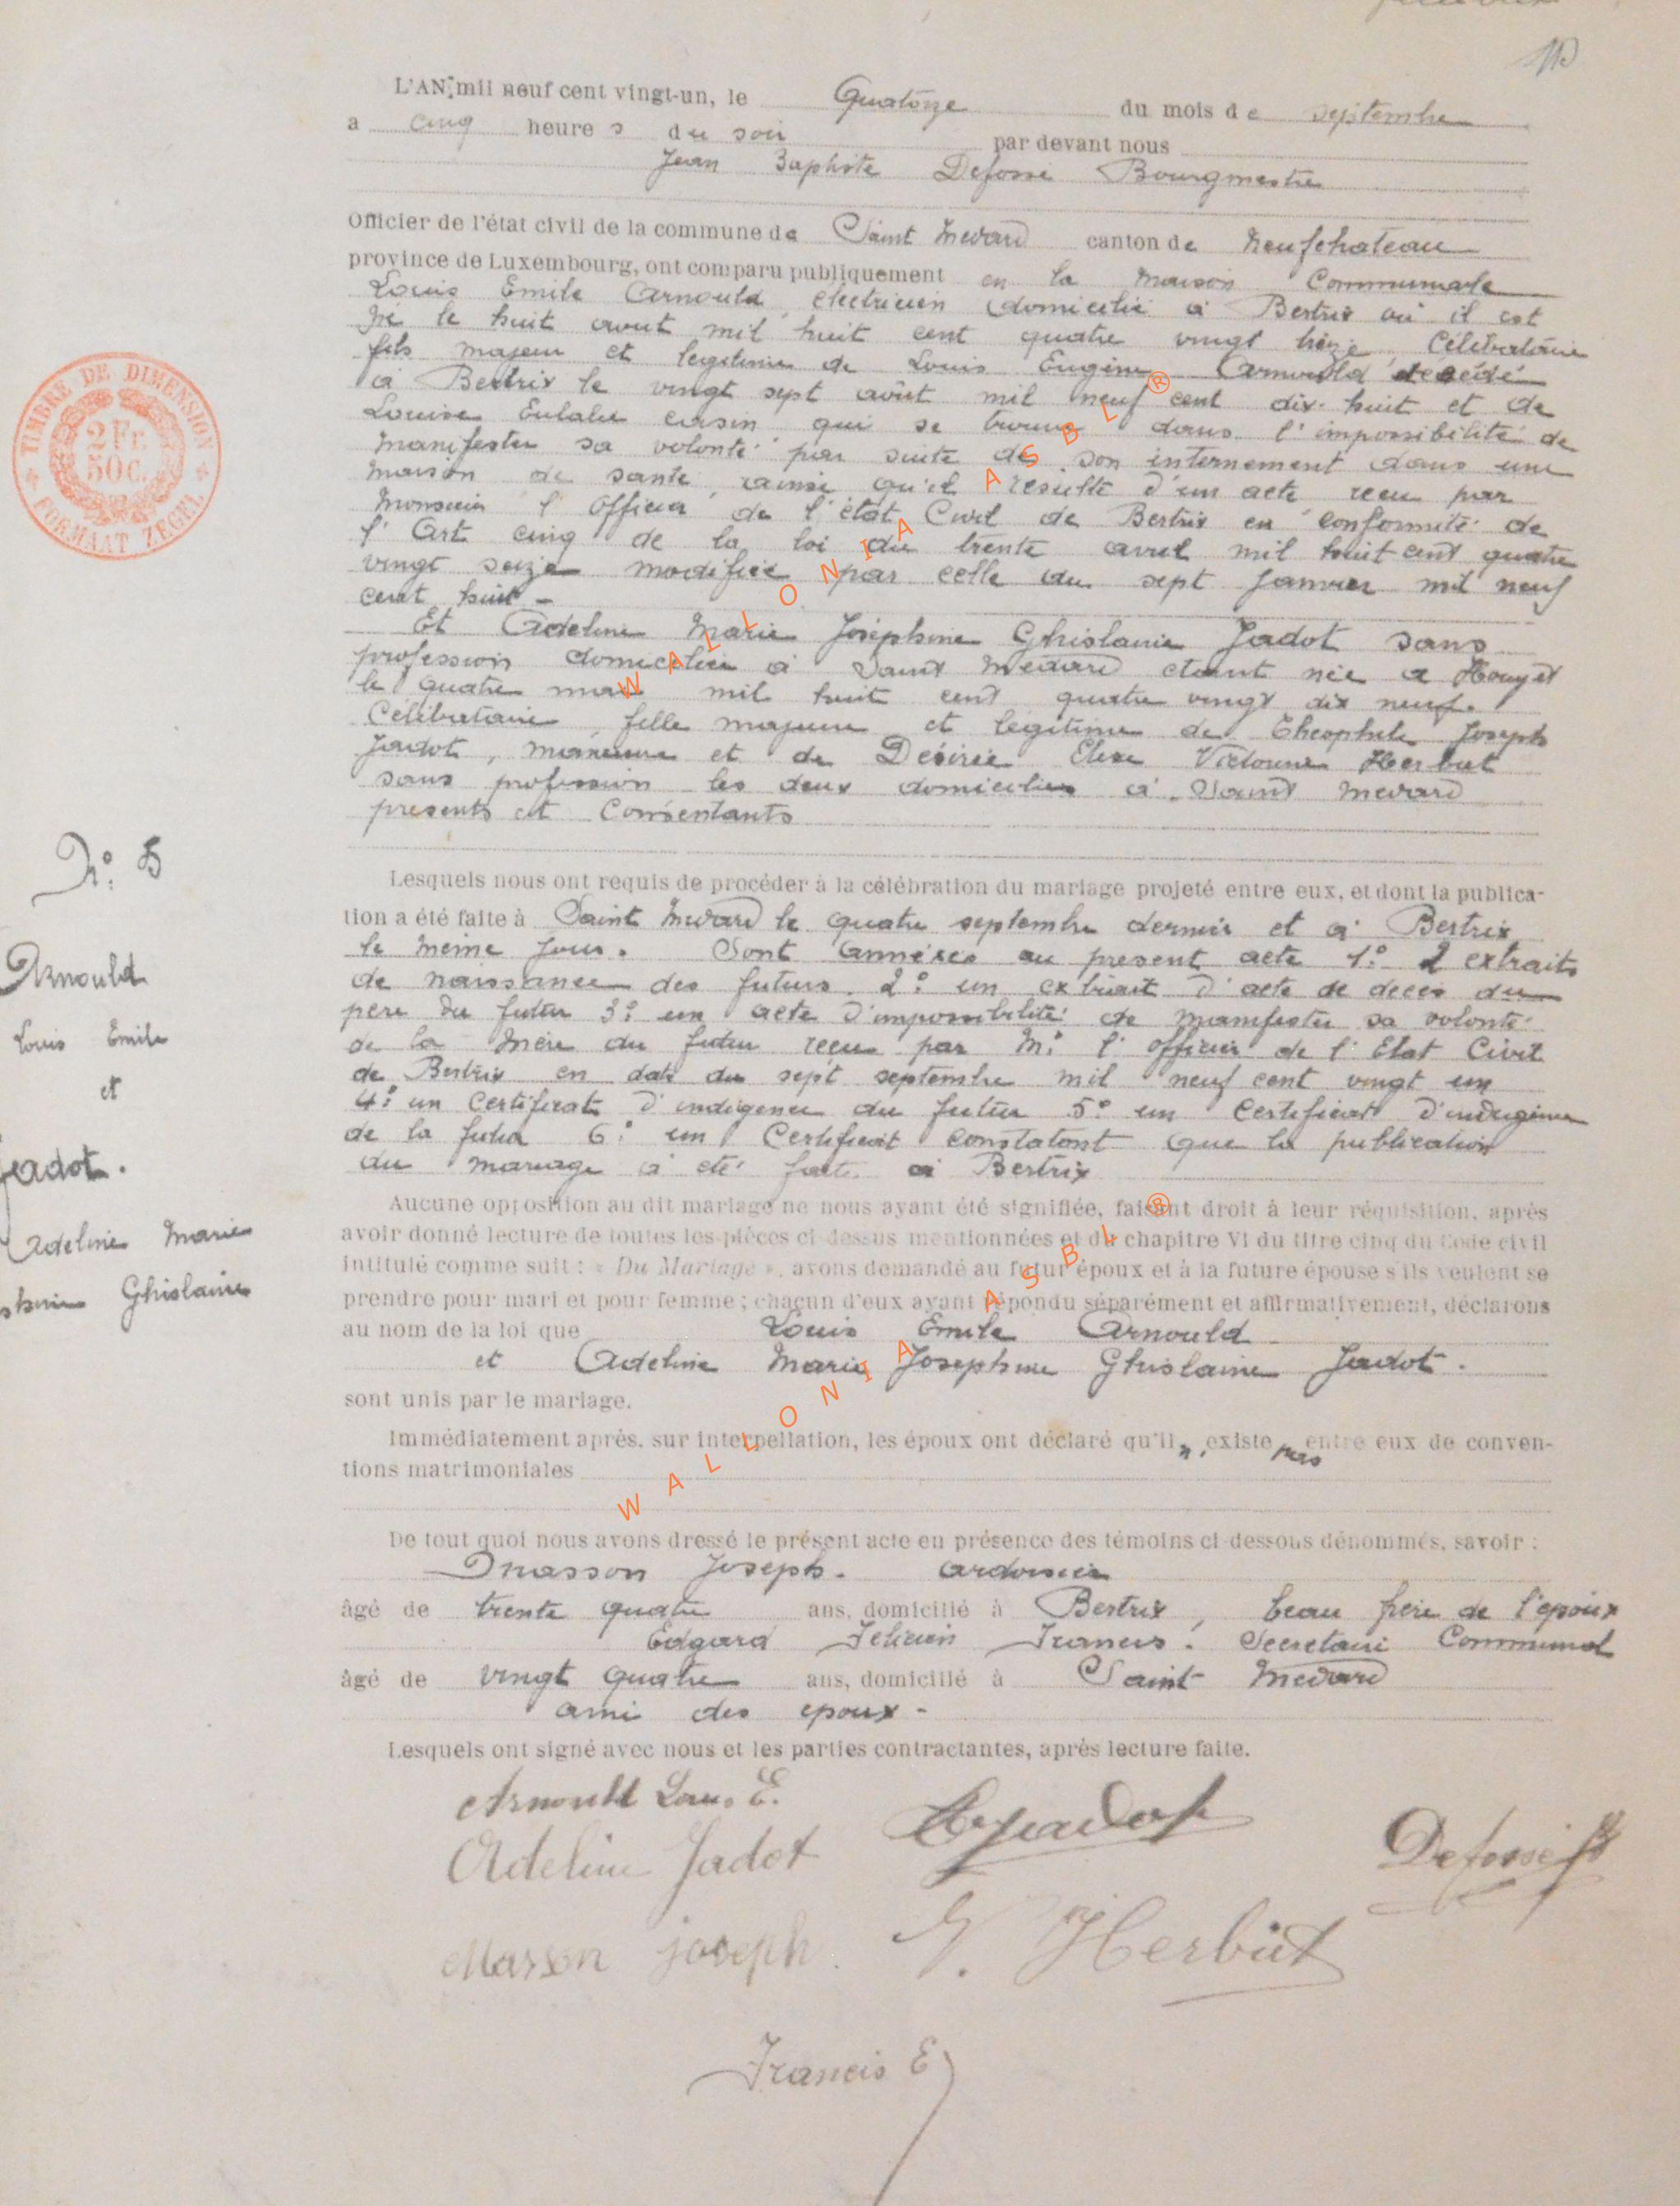 L'AN mil neuf cent vingt-un, le Quatorze du mois de septembre
a cinq heures du soir par devant nous
Jean Baptiste Defossé Bourgmestre
Officier de l'état civil de la commune de Saint Medard canton de Neufchateau
province de Luxembourg, ont comparu publiquement en la maison Communale
Louis Emile Arnould, electricien domicilié à Bertrix où il est
né le huit aout mil huit cent quatre vingt Célibataire
fils majeur et legitime de Louis Eugène Arnould décédé
à Bertrix le vingt sept août mil neuf cent dix-huit et de
Louise Eulalie qui se trouve dans l'impossibilité de
manifester sa volonté par suite de son internement dans une
maison de santé, ainsi qu'il résulte d'un acte recu par
Monsieur l'Officier de l'état Civil de Bertrix en conformité de
l'Art cinq de la loi du trente avril mil huit cent quatre
vingt seize modifiée par celle du sept Janvier mil neuf
cent huit -
Et Adeline Marie Joséphine Ghislaine Jadot sans
profession domiciliée à Saint Medard étant née a Houyet
le quatre mil huit cent quatre vingt dix neuf.
Célibataire, fille majeure et legitime de Théophile Joseph
Jadot, manœuvre et de Désirée Elise Victorine Herbut
sans profession les deux domiciliés à Saint Medard
presents et Consentants
Lesquels nous ont requis de procéder à la célébration du mariage projeté entre eux, et dont la publica-
tion a été faite à Saint Medard le quatre septembre dernier et à Bertrix
le meme jour. Sont annexés au present acte 1° 2 extraits
de naissance des futurs 2° un extrait d'acte de décès du
pere du futur 3° un acte d'impossibilité de manifester sa volonté
de la Mère du futur recu par Mr l'officier de l'Etat Civil
de Bertrix en date du sept septembre mil neuf cent vingt un
4° un certificat d'indigence du futur 5° un Certificat d'indigence
de la futur 6° un Certificat constatant que la publication
du mariage a été faite a Bertrix
Aucune opposition au dit mariage ne nous ayant été signifiée, faisant droit à leur réquisition, après
avoir donné lecture de toutes les pièces ci-dessus mentionnées et du chapitre VI du titre cinq du Code civil
intitulé comme suit : « Du Mariage », avons demandé au futur époux et à la future épouse s'ils veulent se
prendre pour mari et pour femme ; chacun d'eux ayant répondu séparément et affirmativement, déclarons
au nom de la loi que Louis Emile Arnould
et Adeline Marie Josephine Ghislaine Jadot.
sont unis par le mariage.
Immédiatement après, sur interpellation, les époux ont déclaré qu'il n'existe pas entre eux de conven-
tions matrimoniales
De tout quoi nous avons dressé le présent acte en présence des témoins ci-dessous dénommés, savoir :
Masson Joseph. ardoisier
âgé de trente quatre ans, domicilié à Bertrix, beau frère de l'époux
Edgard Felicien Francis. Secretaire Communal
âgé de vingt quatre ans, domicilié à Saint Medard
ami des epoux -
Lesquels ont signé avec nous et les parties contractantes, après lecture faite.
Arnould Louis E.
Jadot
Adeline Jadot
Defossé
Masson joseph.
Herbüt
Francis E
N° 5
Arnould
Louis Emile
et
Jadot.
Adeline Marie
Ghislaine
TIMBRE DE DIMENSION
2 FR.
50 C.
FORMAAT ZEGEL
WALLONIA ASBL ®
WALLONIA ASBL ®